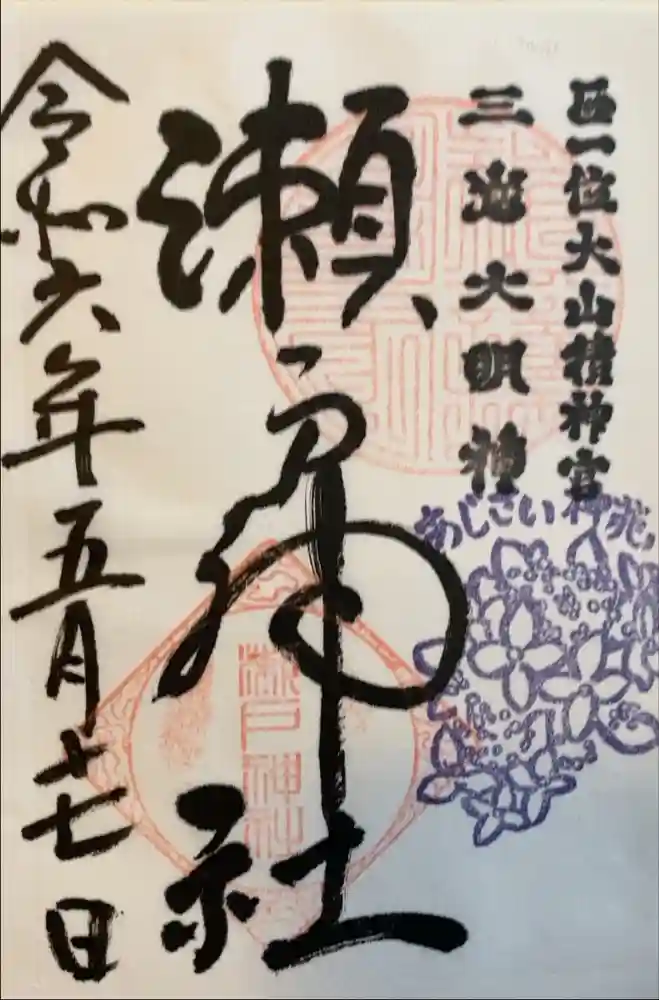 正一位大山積神宮
三島大明神
あじさい神苑
瀬戸神社
瀬戸神社
令和六年五月十七日